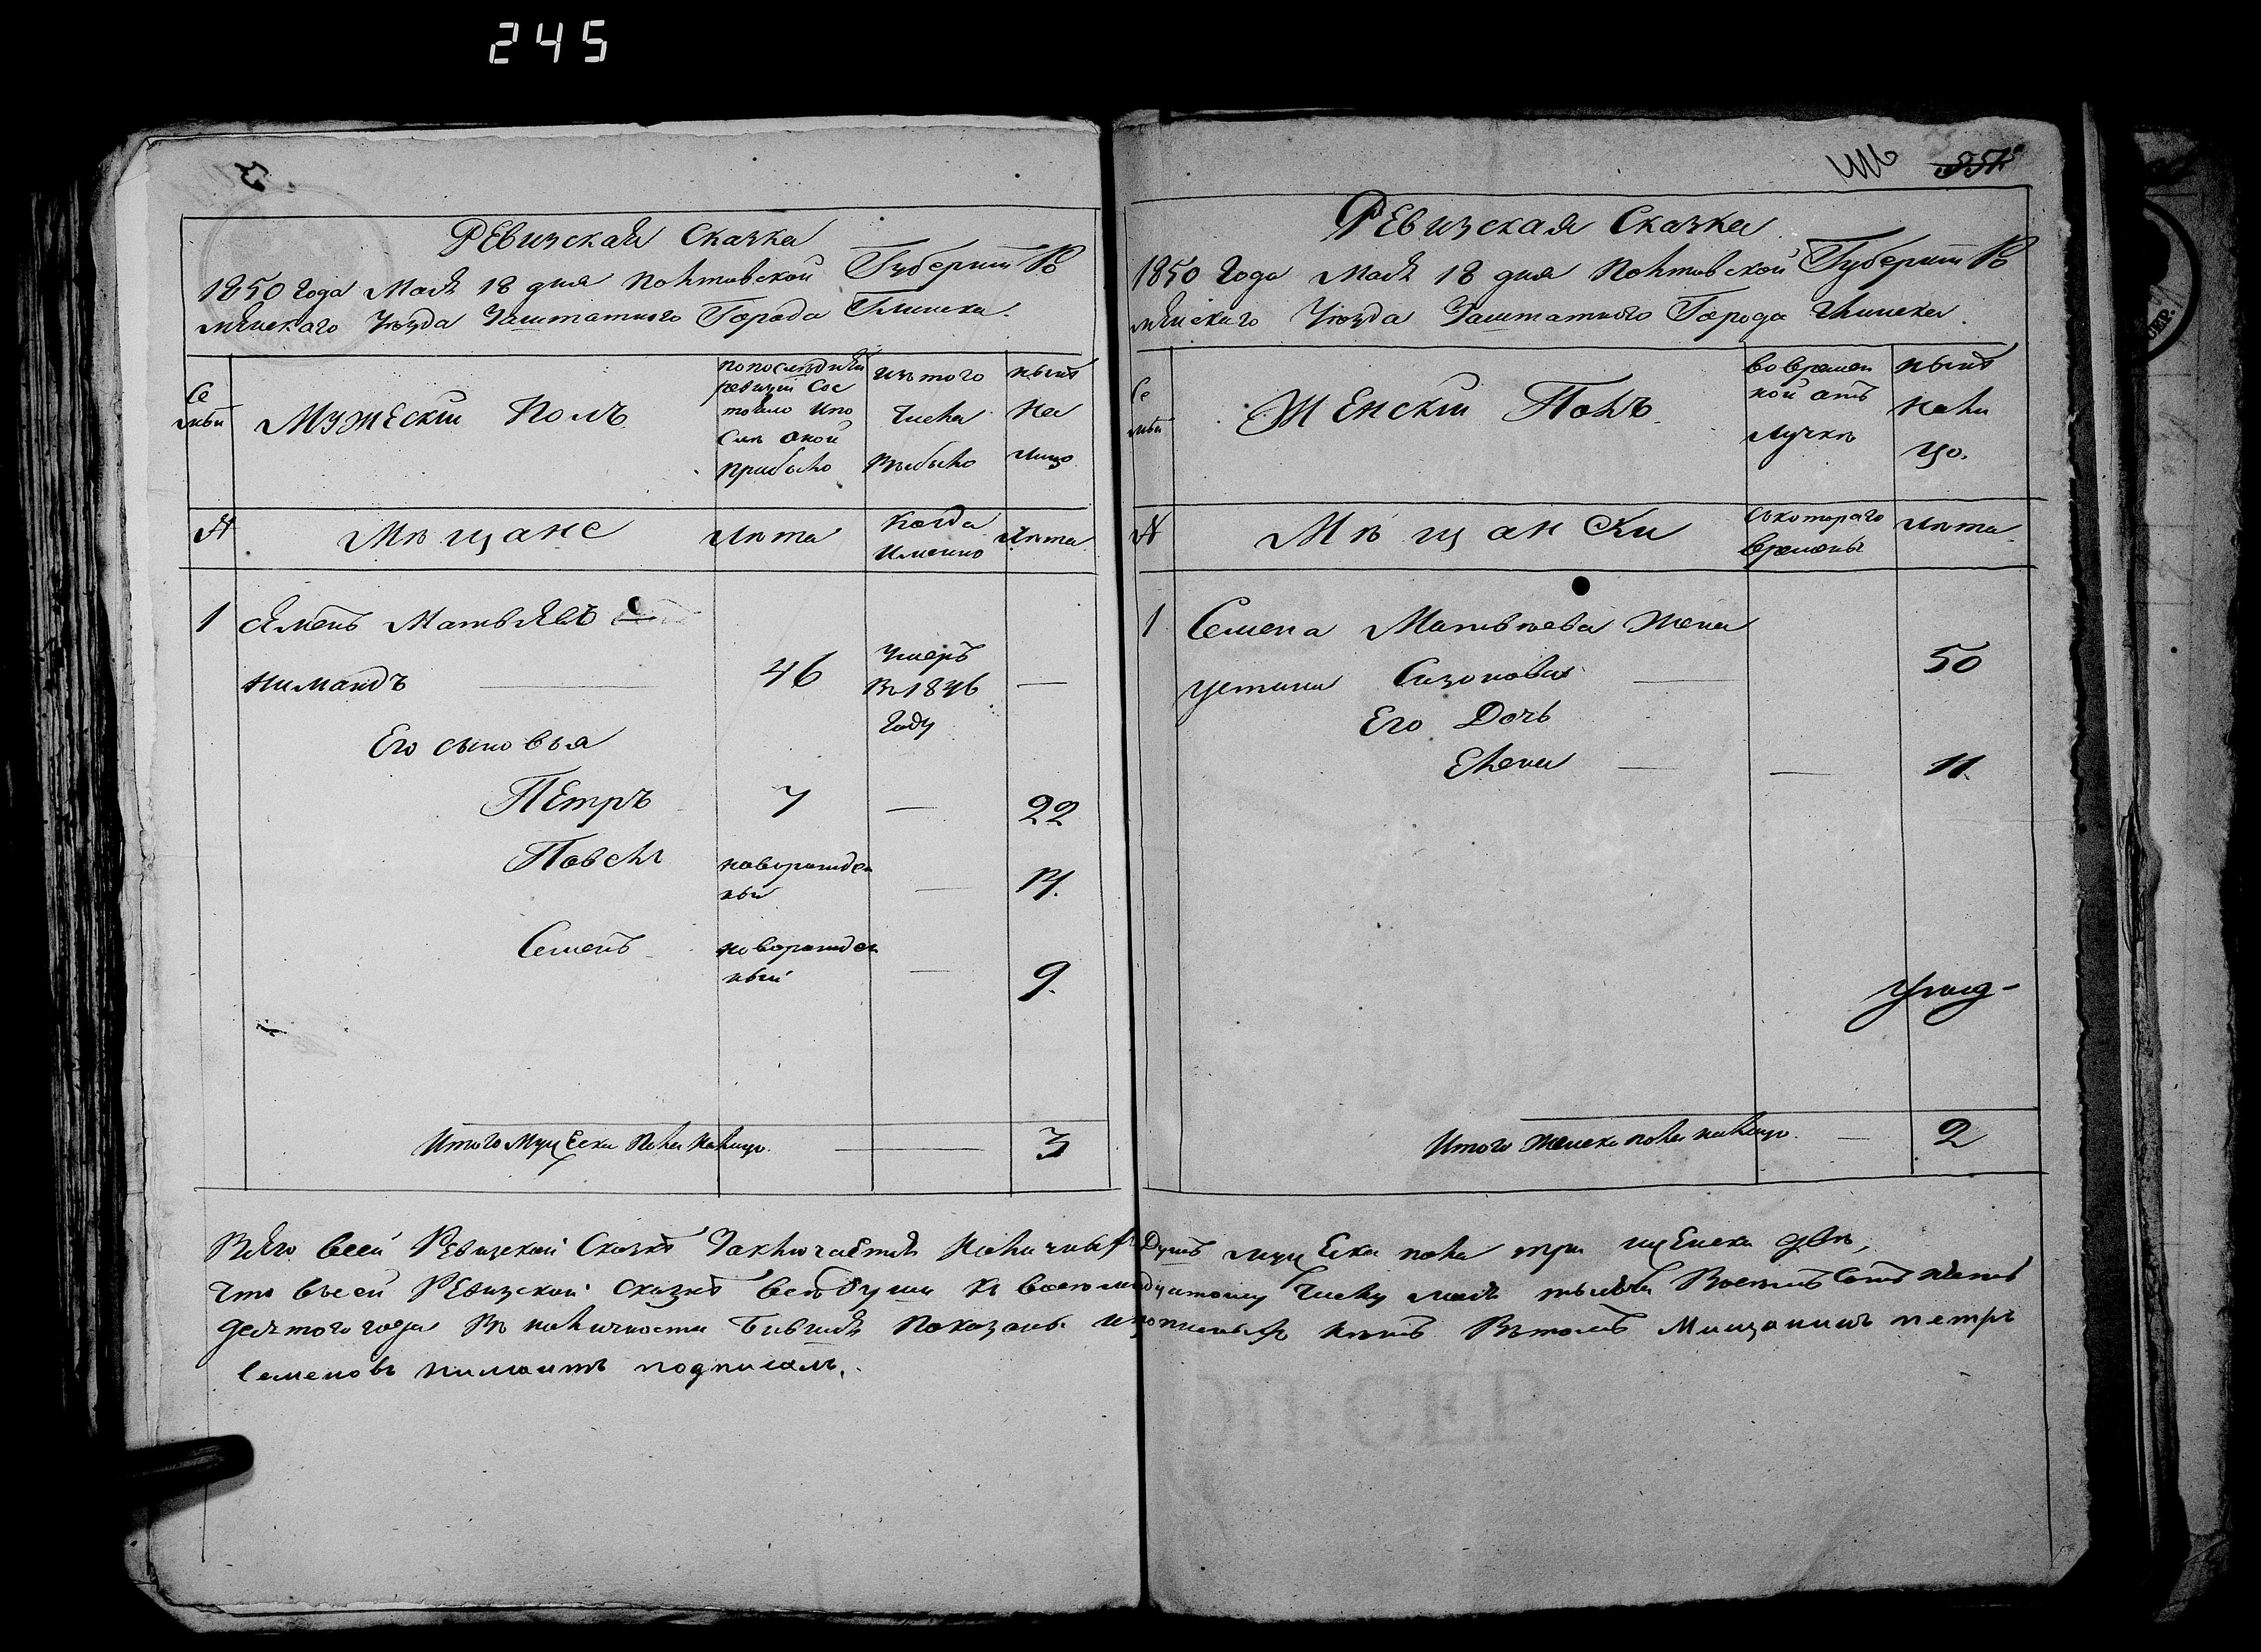 245
3
РЕвизская Сказка
1850 года Маія 18 дня Полтавской Губерніи Ро
мѣнскаго Уѣзда Заштатного Города Глинска.
Се
мьи
Мужескій Полъ
по последней
ревизіи сос
тояло и по
сле оной
прибыло
изъ того
числа
выбыло
нынѣ
на
лицо
№
Мѣщане
Лѣта
Когда
имянно
Лѣта
1
Матвѣевъ
46
Умеръ
въ 1846
году
Его сыновья
ПЕтръ
7
22
Павелъ
новорожден
ный
Семенъ
новорожден
ный
9.
Итого мужеска пола налицо.
3
РЕвизская Сказка
1850 года Маія 18 дня Полтавской Губерніи Ро
мѣнскаго Уѣзда Заштатного Города Глинска.
Се
мьи
ЖЕнскій Полъ
во времен
ной отъ
лучкѣ
нынѣ
нали
цо.
№
Мѣщанки
съ котораго
времены
Лѣта
1
Семена Матвѣева жена
50
Устина Сазонова
Его Дочь
Елена
11.
Итого женска пола налицо.
2
Всего всей Ревизской Сказкѣ Заключаетца Наличныхъ Душъ мужЕска пола три жЕнска двѣ,
что въсей РЕвизской сказкѣ всѣ души къ восемнадцатому числу маія тысяча Восемъ Сотъ пять
десятого года въ наличности бывшія показаны и нѣтъ Въ томъ Мищанинъ петръ
семеновъ подписалъ.